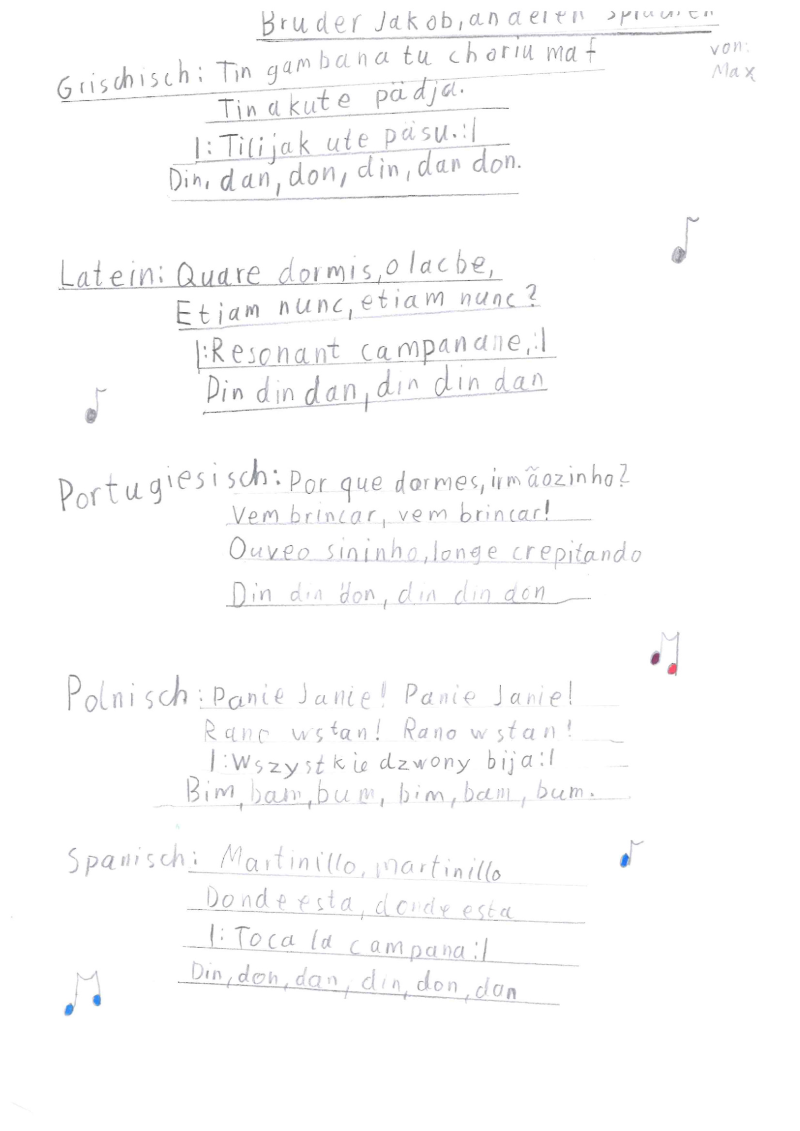 Bruder Jakob, anderen Sprachen
von:
Max
Grischisch: Tin gambana tu choriu maf
Tinakute pädja.
|: Tilijak ute päsu. :|
Din, dan, don, din, dan don.
Latein: Quare dormis, o lacbe,
Etiam nunc, etiam nunc?
|: Resonant campanane, :|
Din din dan, din din dan
Portugiesisch: Por que dormes, irmãozinho?
Vem brincar, vem brincar!
Ouveo sininho, longe crepitando
Din din don, din din don
Polnisch: Panie Janie! Panie Janie!
Rano wstan! Rano wstan!
|: Wszystkie dzwony bija :|
Bim, bam, bum, bim, bam, bum.
Spanisch: Martinillo, martinillo
Donde esta, donde esta
|: Toca la campana :|
Din, don, dan, din, don, dan